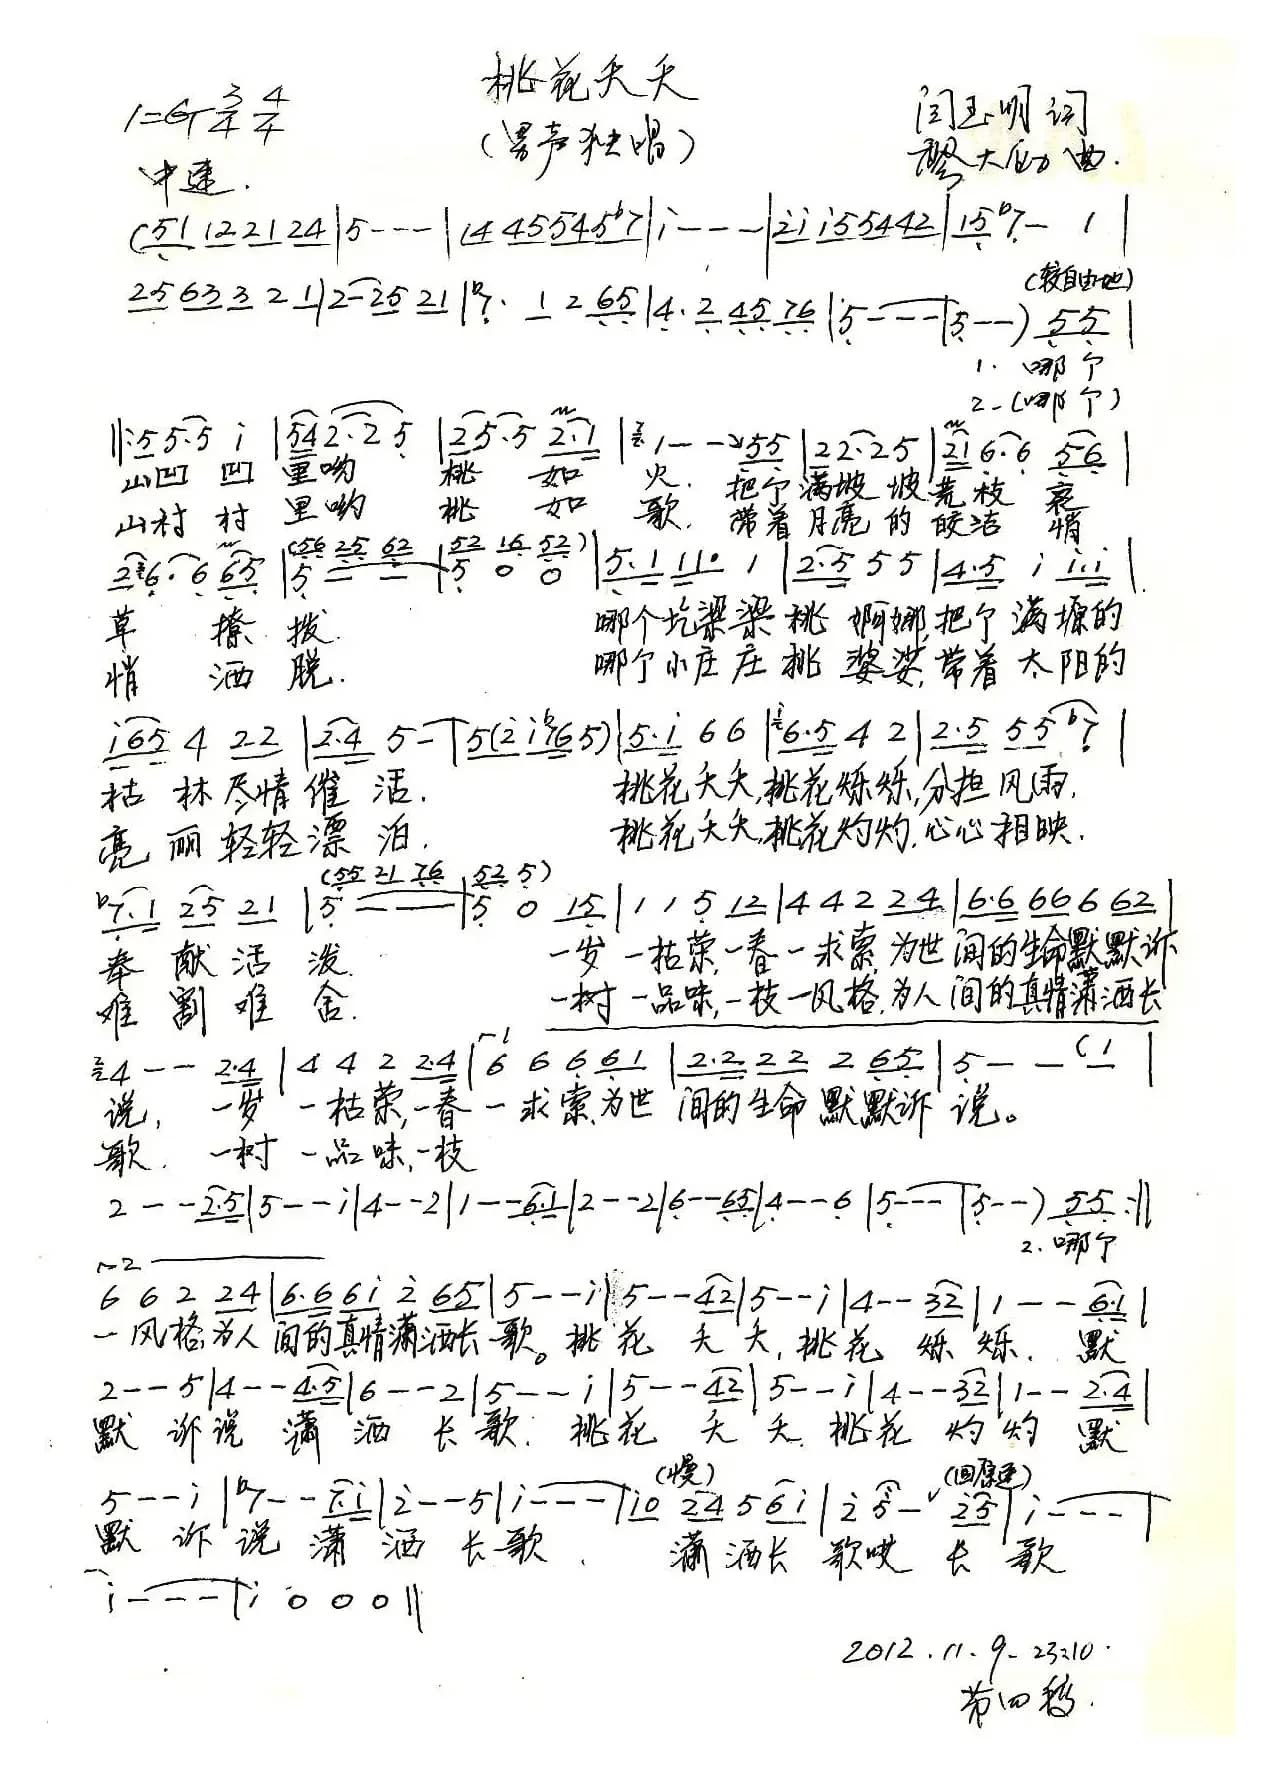 桃花夭夭
1=G 3/4 4/4
(男声独唱)
闫玉明 词
大启 曲.
中速.
(51 12 21 24 | 5 - - - | 14 45 54 5♭7 | i - - - | 2i i5 54 42 | 15 ♭7 - 1 |
(较自由地)
25 63 3 2 1 | 2 - 25 21 | ♭7. 1 2 65 | 4. 2 45 76 | 5 - - - | 5 - - ) 55 |
1. 哪个
2. (哪个)
‖: 5 5. 5 i | 54 2. 2 5 | 25. 5 2. 1 | 1 - - 55 | 22. 2 5 | 21 6. 6 56 |
山凹凹里哟 桃如火. 把个满坡坡荒枝衰
山村村里哟 桃如歌. 带着月亮的皎洁悄
(56 25 62 | 52 16 52)
26. 6 65 | 5 - - | 5 0 0 | 5. 1 11. 1 | 2. 5 5 5 | 4. 5 i i. i |
草撩拨. 哪个圪梁梁桃婀娜,把个满塬的
悄洒脱. 哪个小庄庄桃婆娑,带着太阳的
i65 4 22 | 2. 4 5 - | 5(2i♭765) | 5. i 6 6 | 6. 5 4 2 | 2. 5 55 ♭7 |
枯林尽情催活. 桃花夭夭,桃花烁烁,分担风雨.
亮丽轻轻漂泊. 桃花夭夭,桃花灼灼,心心相映.
(55 21 76 | 52 5)
♭7. 1 25 21 | 5 - - - | 5 0 15 | 1 1 5 12 | 4 4 2 24 | 6. 6 66 6 62 |
奉献活泼. 一岁一枯荣,一春一求索,为世间的生命默默诉
难割难舍. 一树一品味,一枝一风格,为人间的真情潇洒长
4 - - 2. 4 | 4 4 2 2. 4 | 6 6 6 61 | 2. 2 22 2 65 | 5 - - (1 |
说, 一岁一枯荣,一春一求索,为世间的生命默默诉说。
歌. 一树一品味,一枝
2 - - 2. 5 | 5 - - i | 4 - - 2 | 1 - - 6. 1 | 2 - - 2 | 6 - - 65 | 4 - - 6 | 5 - - - | 5 - - ) 55 :‖
2. 哪个
6 6 2 24 | 6. 6 6i 2 65 | 5 - - i | 5 - - 42 | 5 - - i | 4 - - 32 | 1 - - 6. 1 |
一风格,为人间的真情潇洒长歌。桃花夭夭,桃花烁烁. 默
2 - - 5 | 4 - - 4. 5 | 6 - - 2 | 5 - - i | 5 - - 42 | 5 - - i | 4 - - 32 | 1 - - 2. 4 |
默诉说潇洒长歌. 桃花夭夭. 桃花灼灼默
(慢) (回原速)
5 - - i | ♭7 - - 7. i | 2 - - 5 | i - - - | i0 24 5 6i | 2 5 - 25 | i - - - |
默诉说潇洒长歌. 潇洒长歌哎长歌
i - - - | i 0 0 0 ‖
2012.11.9-23:10.
第四稿.